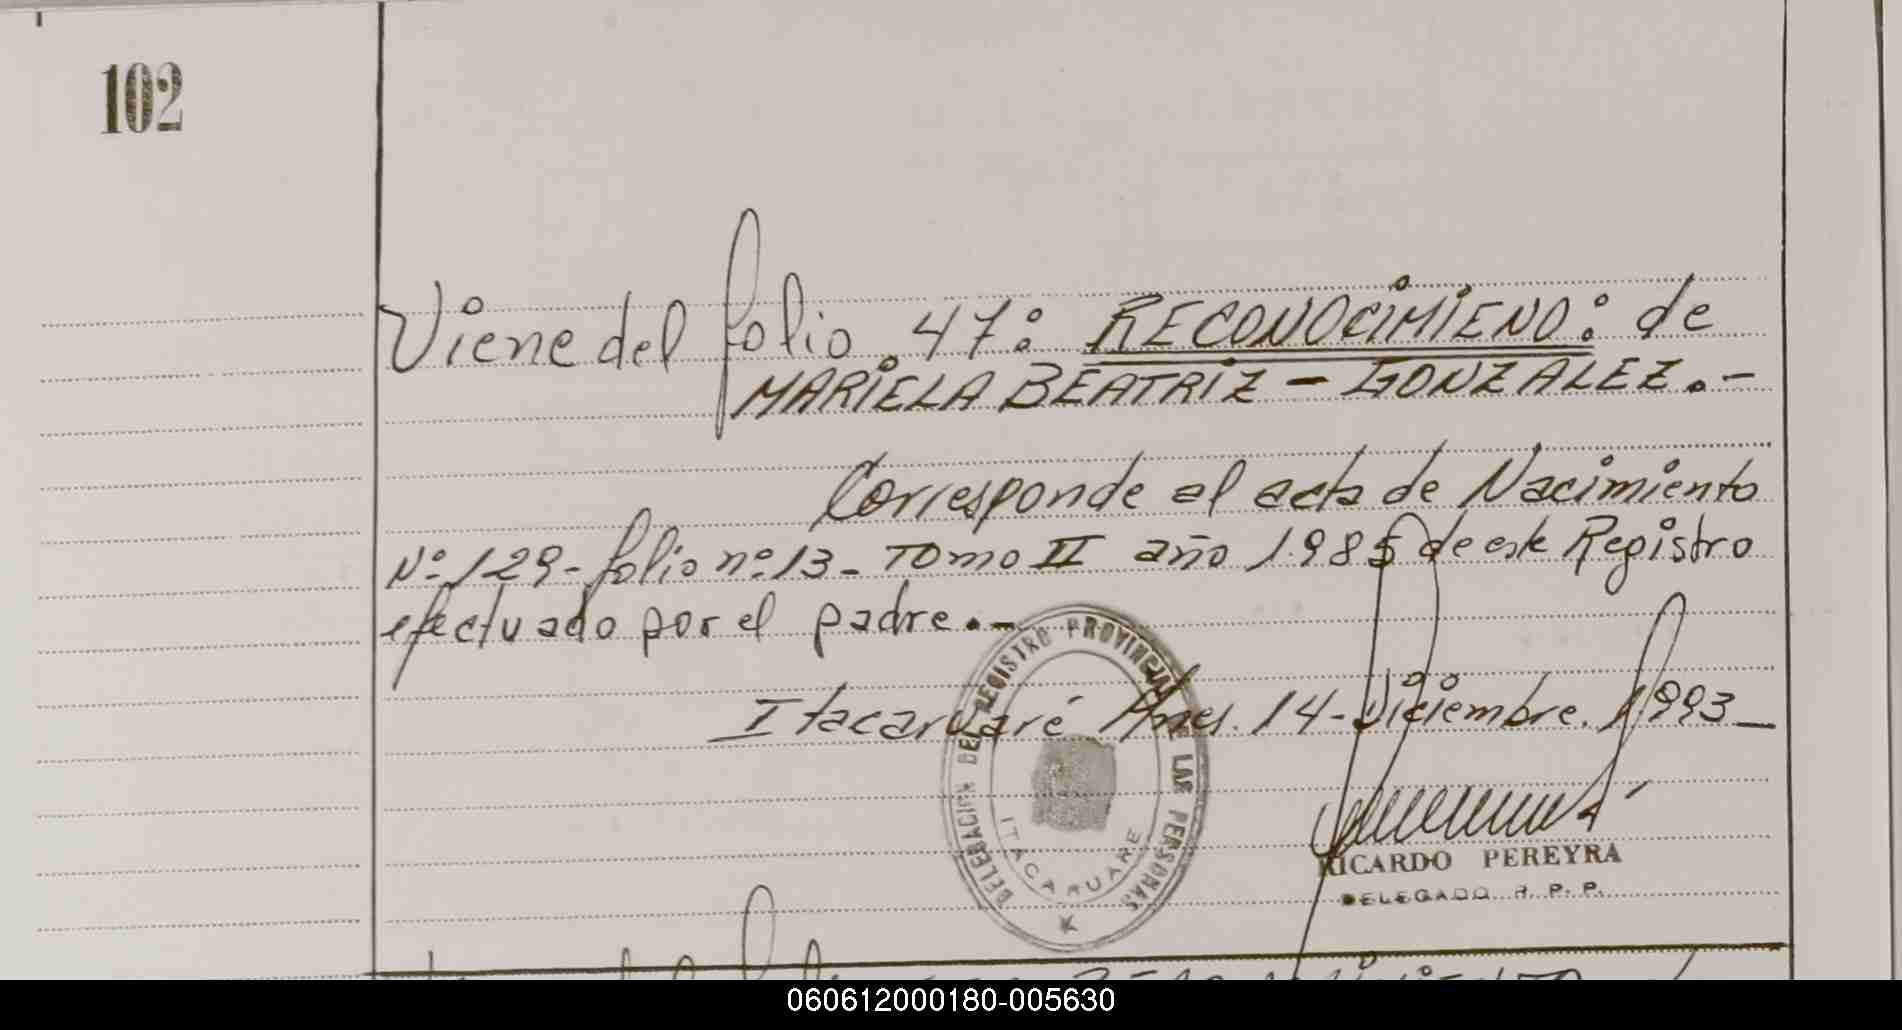 102
Viene del folio. 47: RECONOCIMIENO: de
MARIELA BEATRIZ - GONZALEZ.-
Corresponde al acta de Nacimiento
Nº 129- folio nº 13- Tomo II año 1.985 de este Registro
efectuado por el padre.-
Itacaruaré Mnes. 14-Diciembre. 1993
DELEGACION DEL REGISTRO PROVINCIAL DE LAS PERSONAS
ITACARUARE
RICARDO PEREYRA
DELEGADO R. P. P.
060612000180-005630